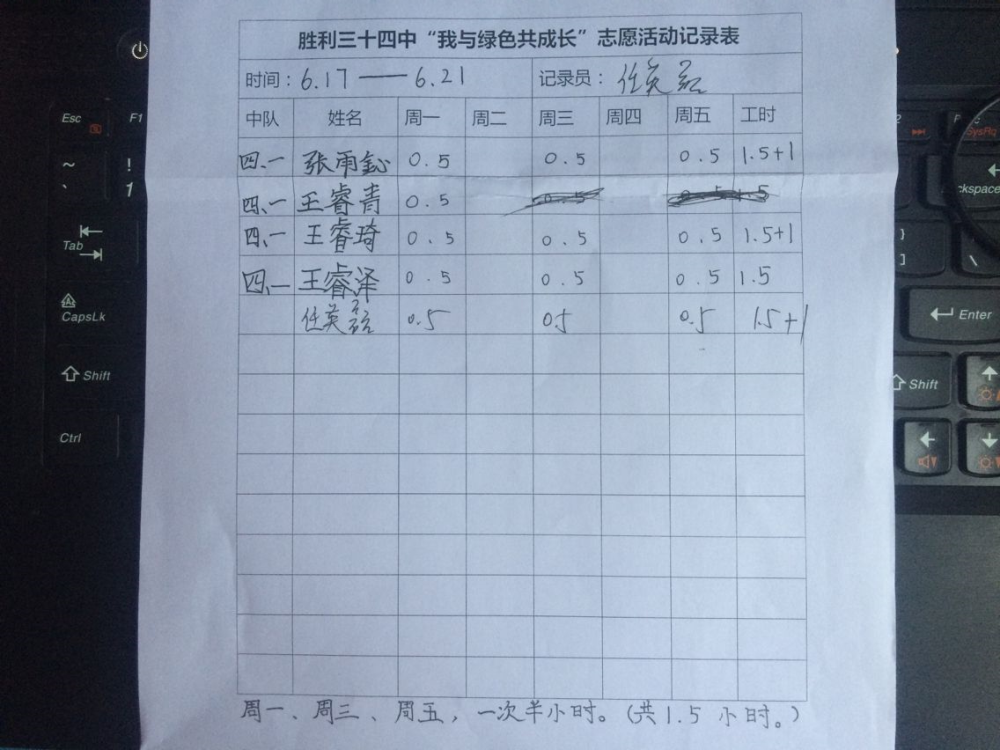 胜利三十四中“我与绿色共成长”志愿活动记录表
时间：6.17 —— 6.21 记录员：任英
中队 姓名 周一 周二 周三 周四 周五 工时
四.一 张雨 0.5 0.5 0.5 1.5+1
四.一 王睿青 0.5
四.一 王睿琦 0.5 0.5 0.5 1.5+1
四.一 王睿泽 0.5 0.5 0.5 1.5
任英 0.5 05 0.5 1.5+1
周一、周三、周五，一次半小时。(共1.5小时。)
Esc
F1
~
、
!
1
Tab
CapsLk
Shift
Ctrl
SysRq
ckspace
}
]
\
Enter
Shift